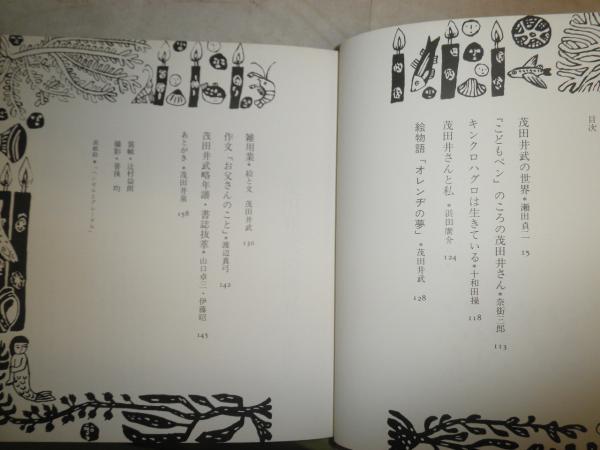 目次
茂田井武の世界＊瀬田貞二 15
「こどもペン」のころの茂田井さん＊奈街三郎 113
キンクロハグロは生きている＊十和田操 118
茂田井さんと私＊浜田廣介 124
絵物語「オレンヂの夢」＊茂田井武 128
雑用業＊絵と文 茂田井武 130
作文「お父さんのこと」＊渡辺真弓 142
茂田井武略年譜・書誌抜萃＊山口卓三・伊藤昭 145
あとがき＊茂田井 158
装幀＊辻村益朗
撮影＊善後 均
表紙絵＊「ヘンゼルとグレーテル」